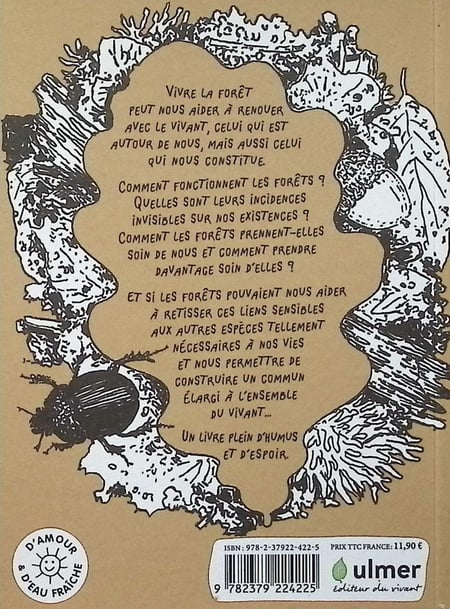 VIVRE LA FORÊT
PEUT NOUS AIDER À RENOUER
AVEC LE VIVANT, CELUI QUI EST
AUTOUR DE NOUS, MAIS AUSSI CELUI
QUI NOUS CONSTITUE.
COMMENT FONCTIONNENT LES FORÊTS ?
QUELLES SONT LEURS INCIDENCES
INVISIBLES SUR NOS EXISTENCES ?
COMMENT LES FORÊTS PRENNENT-ELLES
SOIN DE NOUS ET COMMENT PRENDRE
DAVANTAGE SOIN D'ELLES ?
ET SI LES FORÊTS POUVAIENT NOUS AIDER
À RETISSER CES LIENS SENSIBLES
AUX AUTRES ESPÈCES TELLEMENT
NÉCESSAIRES À NOS VIES
ET NOUS PERMETTRE DE
CONSTRUIRE UN COMMUN
ÉLARGI À L'ENSEMBLE
DU VIVANT...
UN LIVRE PLEIN D'HUMUS
ET D'ESPOIR.
D'AMOUR
& D'EAU FRAÎCHE
ISBN : 978-2-37922-422-5
PRIX TTC FRANCE: 11,90 €
9 782379 224225
ulmer
éditeur du vivant